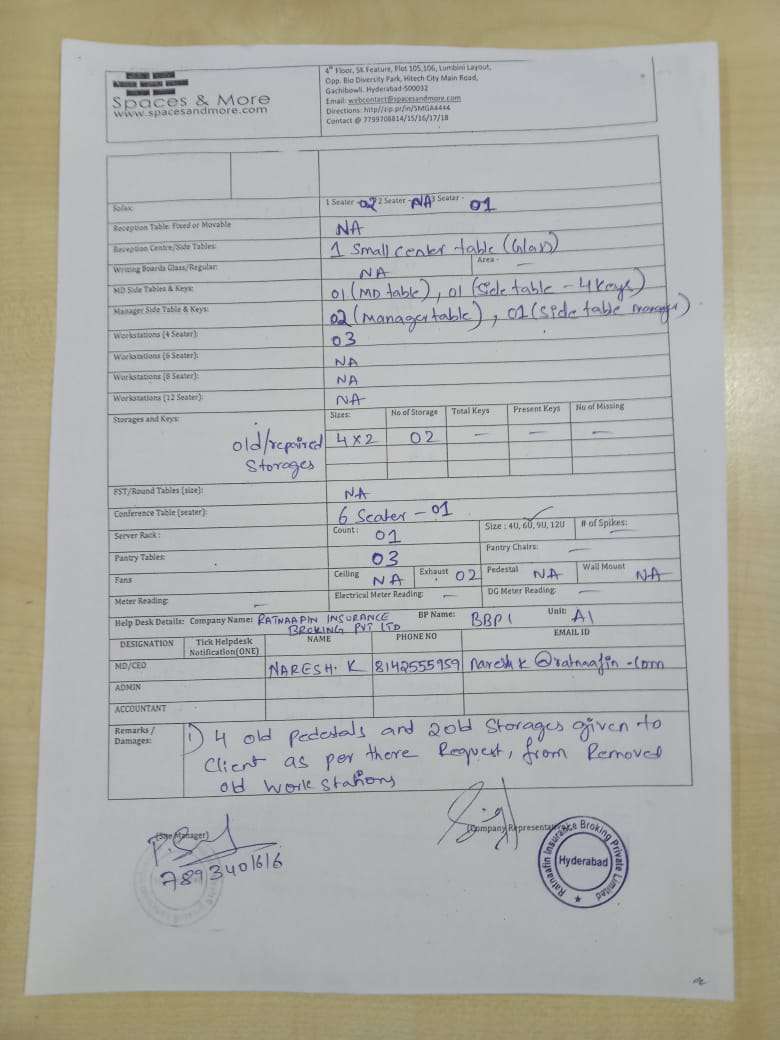 Spaces & More
www.spacesandmore.com
4th Floor, SK Feature, Plot 105,106, Lumbini Layout,
Opp. Bio Diversity Park, Hitech City Main Road,
Gachibowli. Hyderabad-500032
Email: webcontact@spacesandmore.com
Directions: http//zip.pr/in/SMGA4444
Contact @ 7799708814/15/16/17/18
Sofas: 1 Seater - 02 2 Seater - NA 3 Seater - 01
Reception Table: Fixed or Movable NA
Reception Centre/Side Tables: 1 Small center table (Glass)
Writing Boards Glass/Regular: NA Area - —
MD Side Tables & Keys: 01 (MD table), 01 (Side table - 4 keys)
Manager Side Table & Keys: 02 (Manager table), 01 (Side table manager)
Workstations (4 Seater): 03
Workstations (6 Seater): NA
Workstations (8 Seater): NA
Workstations (12 Seater): NA
Storages and Keys: Sizes: No of Storage Total Keys Present Keys No of Missing
old/repaired 4x2 02 — — —
Storages
FST/Round Tables (size): NA
Conference Table (seater): 6 Seater - 01
Server Rack: Count: 01 Size : 4U, 6U, 9U, 12U # of Spikes: —
Pantry Tables: 03 Pantry Chairs: —
Fans Ceiling NA Exhaust 02 Pedestal NA Wall Mount NA
Meter Reading: — Electrical Meter Reading: — DG Meter Reading: —
Help Desk Details: Company Name: RATNAAFIN INSURANCE BROKING PVT LTD BP Name: BBP1 Unit: A1
DESIGNATION Tick Helpdesk Notification(ONE) NAME PHONE NO EMAIL ID
MD/CEO NARESH. K 8142555959 naresh k @ratnaafin.com
ADMIN
ACCOUNTANT
Remarks / Damages: 1) 4 old Pedestals and 2 old Storages given to
Client as per there Request, from Removed
old work stations
(Site Manager)
7893401616
(Company Representative)
Ratnaafin Insurance Broking Private Limited
Hyderabad